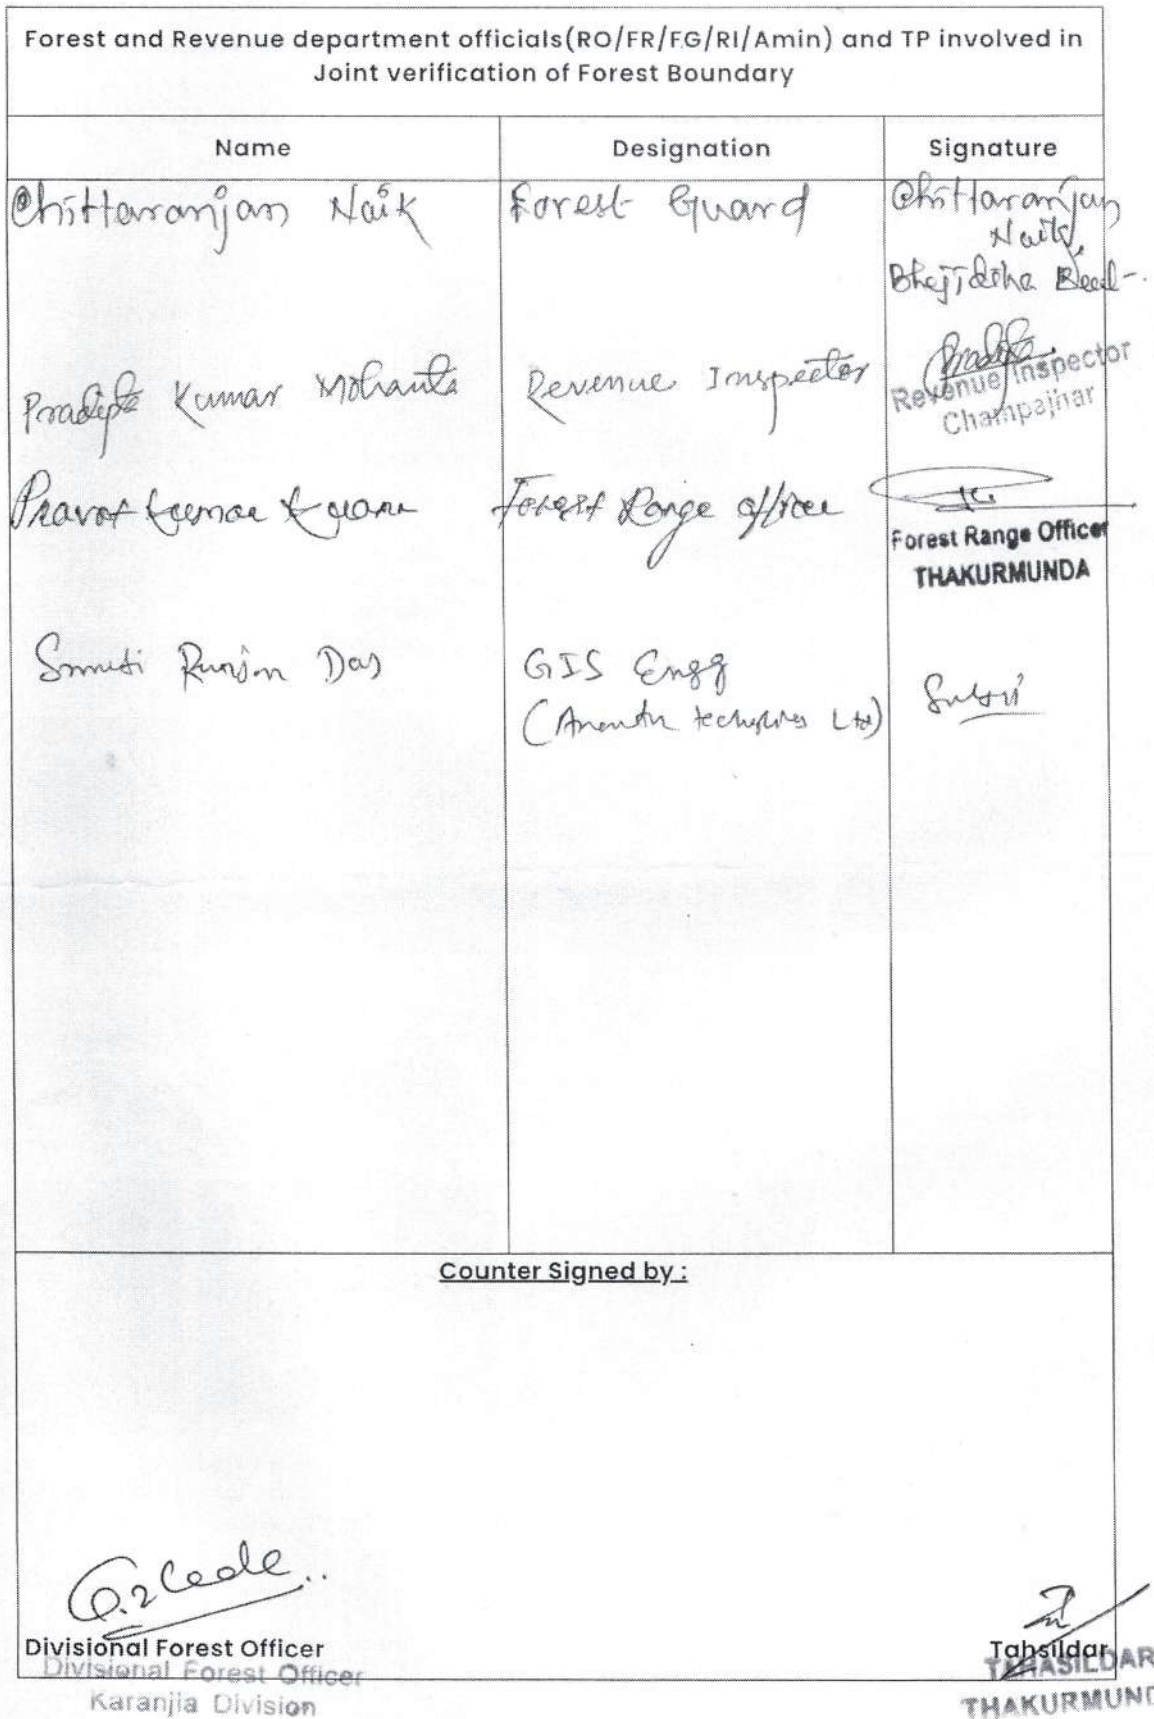 Forest and Revenue department officials(RO/FR/FG/RI/Amin) and TP involved in
Joint verification of Forest Boundary
Name Designation Signature
Chittaranjan Naik Forest Guard Chittaranjan
Naik
Pradipta Kumar Mohanta Revenue Inspector Pradipta
Revenue Inspector
Champajhar
Pravat Kumar Forest Range officer
Forest Range Officer
THAKURMUNDA
Smruti Ranjan Das GIS Engg
(Ananth technologies Ltd)
Counter Signed by :
Divisional Forest Officer Tahsildar
Divisional Forest Officer TAHASILDAR
Karanjia Division THAKURMUND